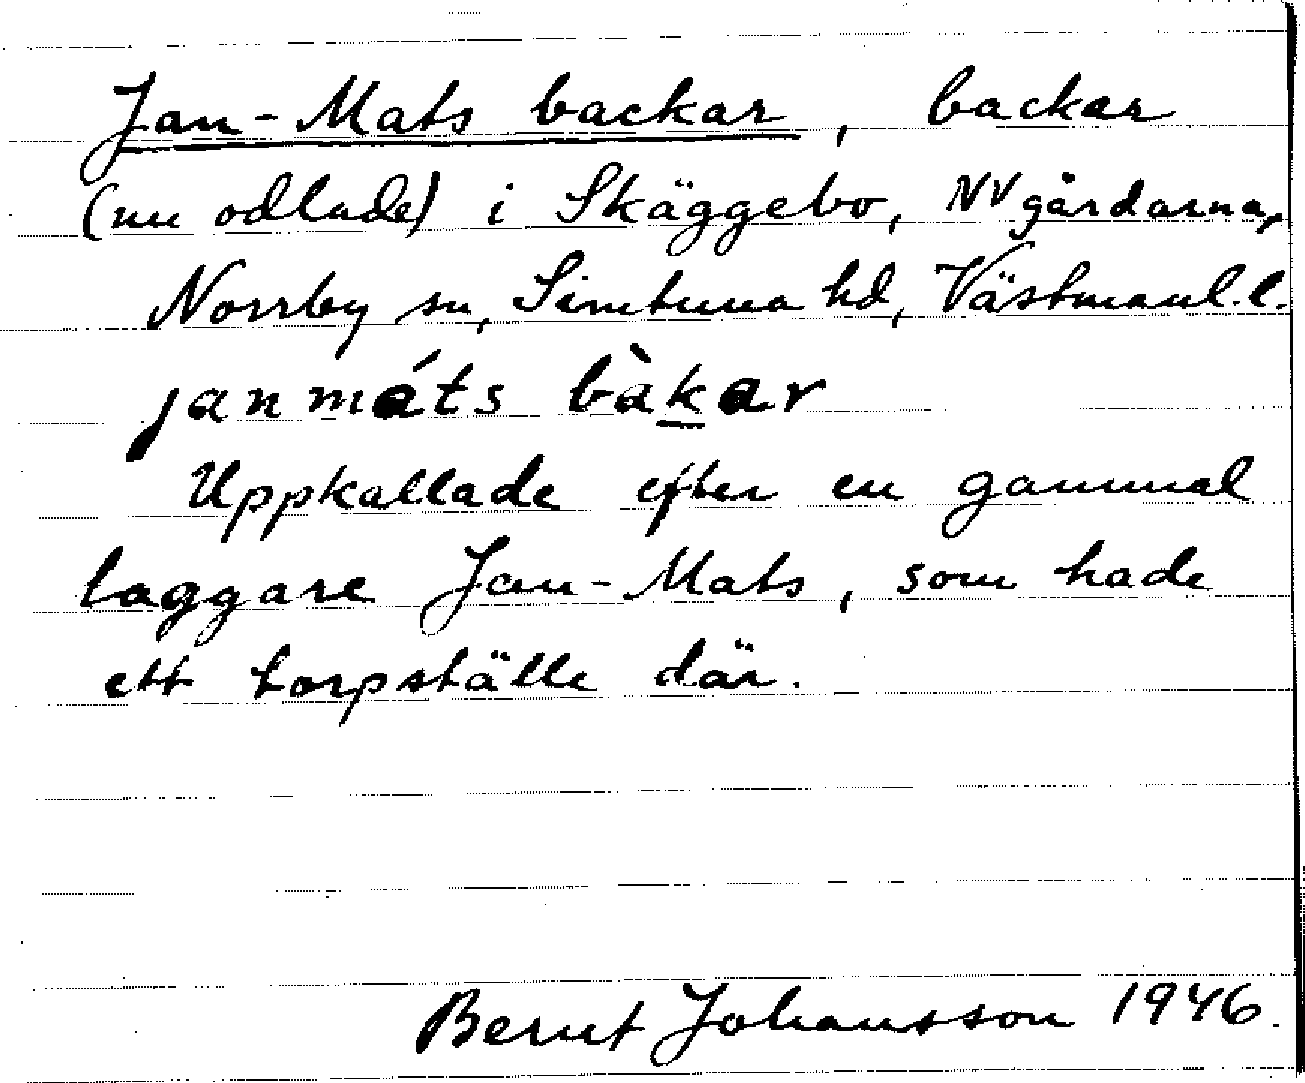 Jan-Mats backar, backar
(nu odlade) i Skäggebo, NV gårdarna,
Norrby sn, Simtuna hd, Västmanl. l.
janmáts bàkar
Uppkallade efter en gammal
laggare Jan-Mats, som hade
ett torpställe där.
Bernt Johansson 1946.